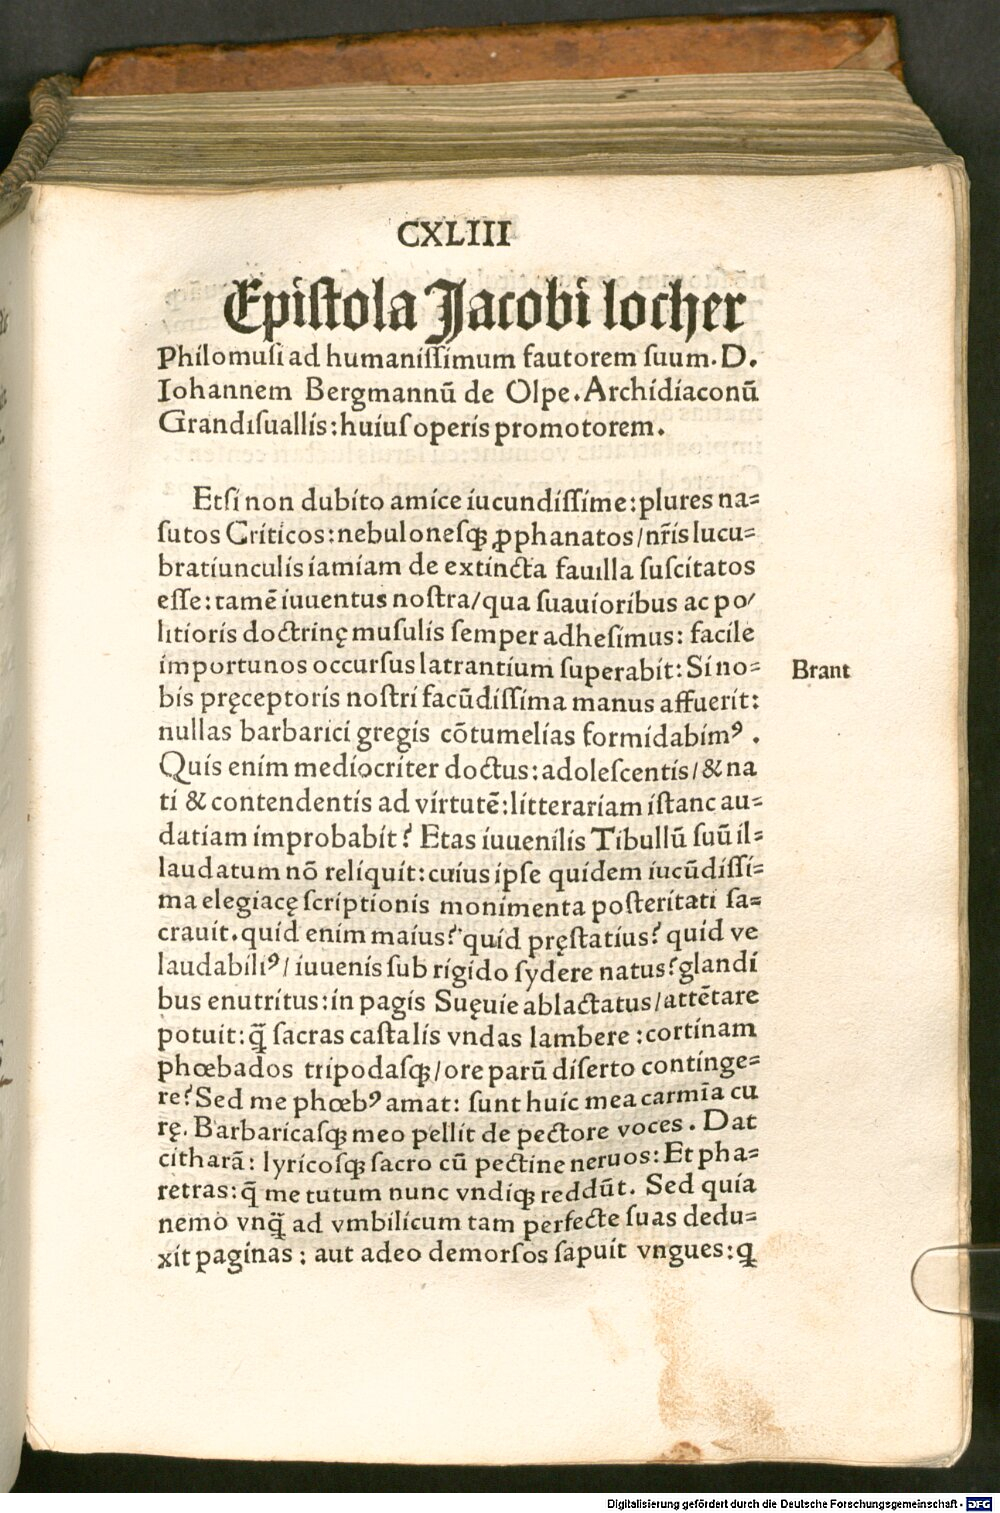 CXLIII
Epiſtola Jacobi locher
Philomuſi ad humaniſſimum fautorem ſuum. D.
Iohannem Bergmannū de Olpe. Archidiaconū
Grandiſuallis: huiuſ operis promotorem.
Etſi non dubito amice iucundiſſime: plures na=
ſutos Criticos: nebuloneſqꝫ ꝓphanatos/ nr̄is lucu=
bratiunculis iamiam de extincta fauilla ſuſcitatos
eſſe: tamē iuuentus noſtra/ qua ſuauioribus ac po/
litioris doctrinę muſulis ſemper adheſimus: facile
importunos occurſus latrantium ſuperabit: Si no=
Brant
bis pręceptoris noſtri facūdiſſima manus affuerit:
nullas barbarici gregis cōtumelias formidabimꝰ .
Quis enim mediocriter doctus: adoleſcentis/ & na
ti & contendentis ad virtutē: litterariam iſtanc au=
datiam improbabit? Etas iuuenilis Tibullū ſuū il=
laudatum nō reliquit: cuius ipſe quidem iucūdiſſi=
ma elegiacę ſcriptionis monimenta poſteritati ſa=
crauit. quid enim maius? quid pręſtatius? quid ve
laudabiliꝰ/ iuuenis ſub rigido ſydere natus? glandi
bus enutritus: in pagis Suęuie ablactatus/ attētare
potuit: q̄ꝫ ſacras caſtalis vndas lambere: cortinam
phœbados tripodaſqꝫ/ ore parū diſerto continge=
re? Sed me phœbꝰ amat: ſunt huic mea carmīa cu
rę. Barbaricaſqꝫ meo pellit de pectore voces. Dat
citharā: lyricoſqꝫ ſacro cū pectine neruos: Et pha=
retras: q̄ me tutum nunc vndiqꝫ reddūt. Sed quia
nemo vnq̄ꝫ ad vmbilicum tam perfecte ſuas dedu=
xit paginas: aut adeo demorſos ſapuit vngues: ꝙ
Digitalisierung gefördert durch die Deutsche Forschungsgemeinschaft - DFG